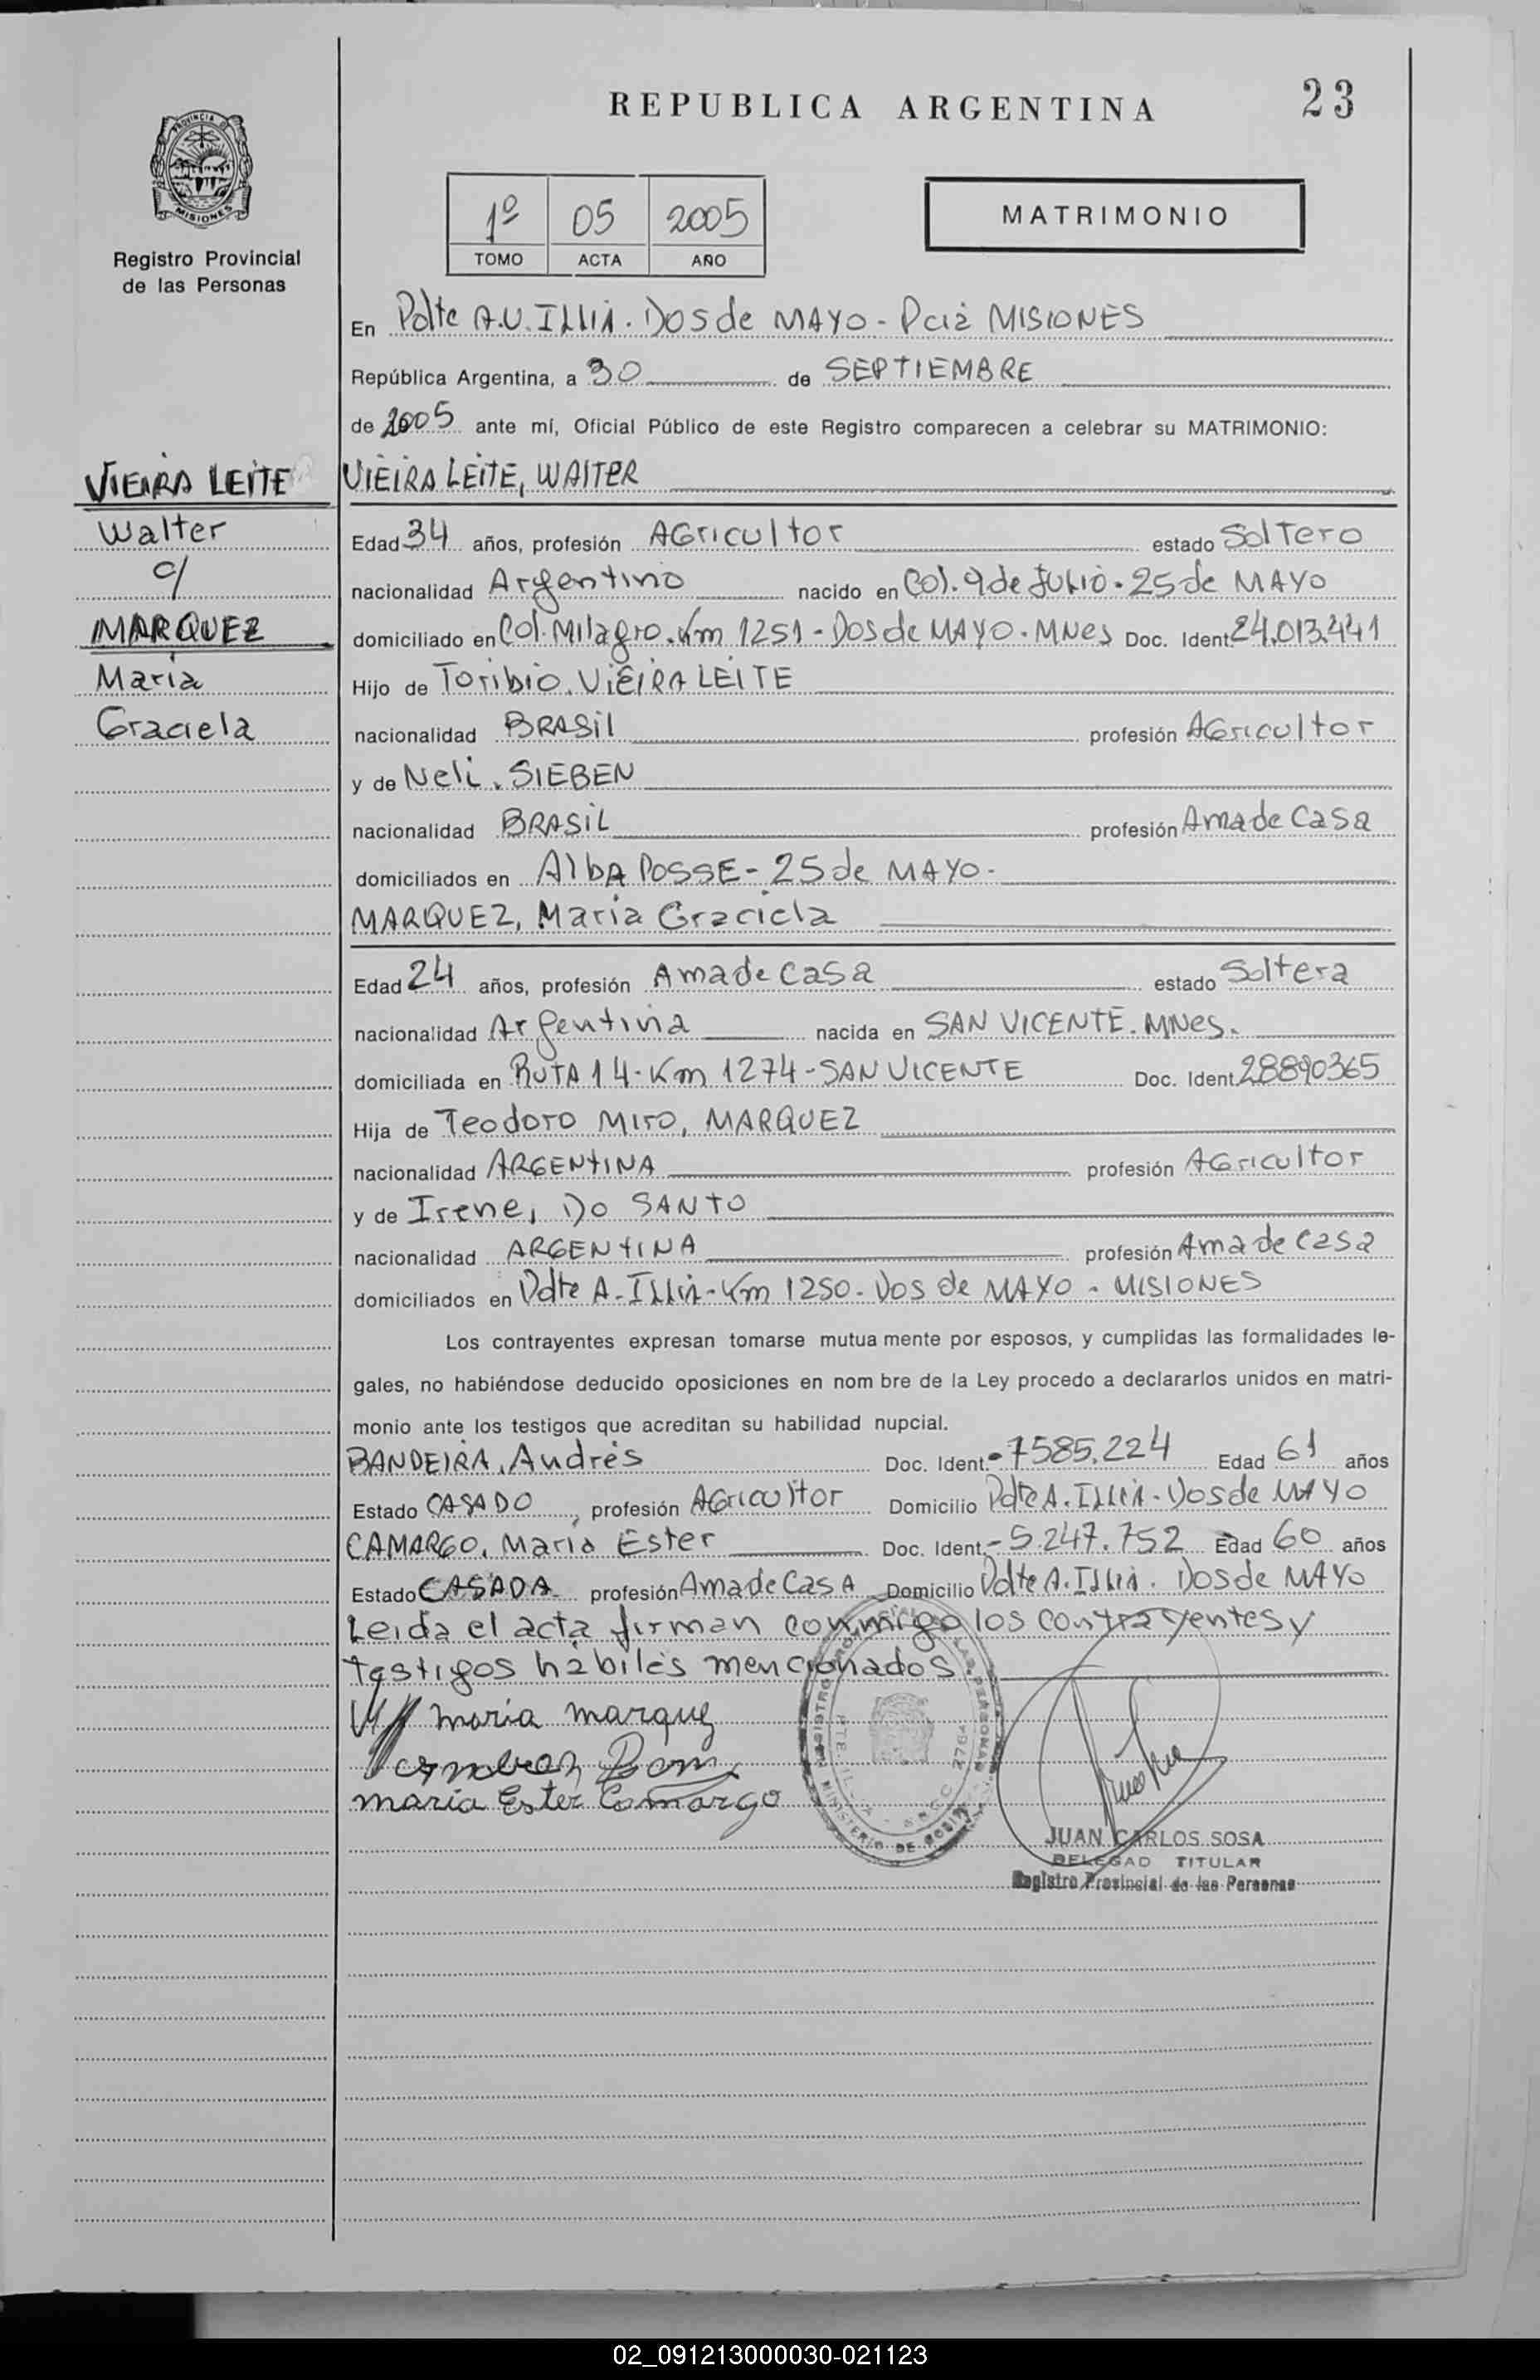 REPUBLICA ARGENTINA
23
PROVINCIA DE
MISIONES
Registro Provincial
de las Personas
1º 05 2005
TOMO ACTA AÑO
MATRIMONIO
En Pdte A.U. ILLIA. Dos de MAYO - Pcia MISIONES
República Argentina, a 30 de SEPTIEMBRE
de 2005 ante mí, Oficial Público de este Registro comparecen a celebrar su MATRIMONIO:
VIEIRA LEITE
Walter
c/
MARQUEZ
Maria
Graciela
VIEIRA LEITE, WALTER
Edad 34 años, profesión AGricultor estado SolTero
nacionalidad Argentino nacido en Col. 9 de JULIO - 25 de MAYO
domiciliado en Col. Milagro. Km 1251 - Dos de MAYO. MNes Doc. Ident. 24.013.441
Hijo de Toribio. VIEIRA LEITE
nacionalidad BRASil profesión AGricultor
y de Neli. SIEBEN
nacionalidad BRASIL profesión Ama de Casa
domiciliados en AlbA POSSE - 25 de MAYO -
MARQUEZ, Maria Graciela
Edad 24 años, profesión Ama de CASA estado Soltera
nacionalidad Argentina nacida en SAN VICENTE. MNes.
domiciliada en RUTA 14 - Km 1274 - SAN VICENTE Doc. Ident. 28890365
Hija de Teodoro Miro, MARQUEZ
nacionalidad ARGENTINA profesión AGricultor
y de Irene, Do SANTO
nacionalidad ARGENTINA profesión Ama de Casa
domiciliados en Pdte A. Illia - Km 1250 - Dos de MAYO - MISIONES
Los contrayentes expresan tomarse mutua mente por esposos, y cumplidas las formalidades le-
gales, no habiéndose deducido oposiciones en nom bre de la Ley procedo a declararlos unidos en matri-
monio ante los testigos que acreditan su habilidad nupcial.
BANDEIRA, Andrés Doc. Ident. - 7585.224 Edad 61 años
Estado CASADO, profesión AGricultor Domicilio Pdte A. ILLIA - Dos de MAYO
CAMARGO, Maria Ester Doc. Ident. - 5.247.752 Edad 60 años
Estado CASADA profesión Ama de CasA Domicilio Pdte A. Illia. Dos de MAYO
Leida el acta firman conmigo los contrayentes y
testigos hábiles mencionados
maria marquez
maria Ester Camargo
JUAN CARLOS SOSA
DELEGAD TITULAR
Registro Provincial de las Personas
02_091213000030-021123